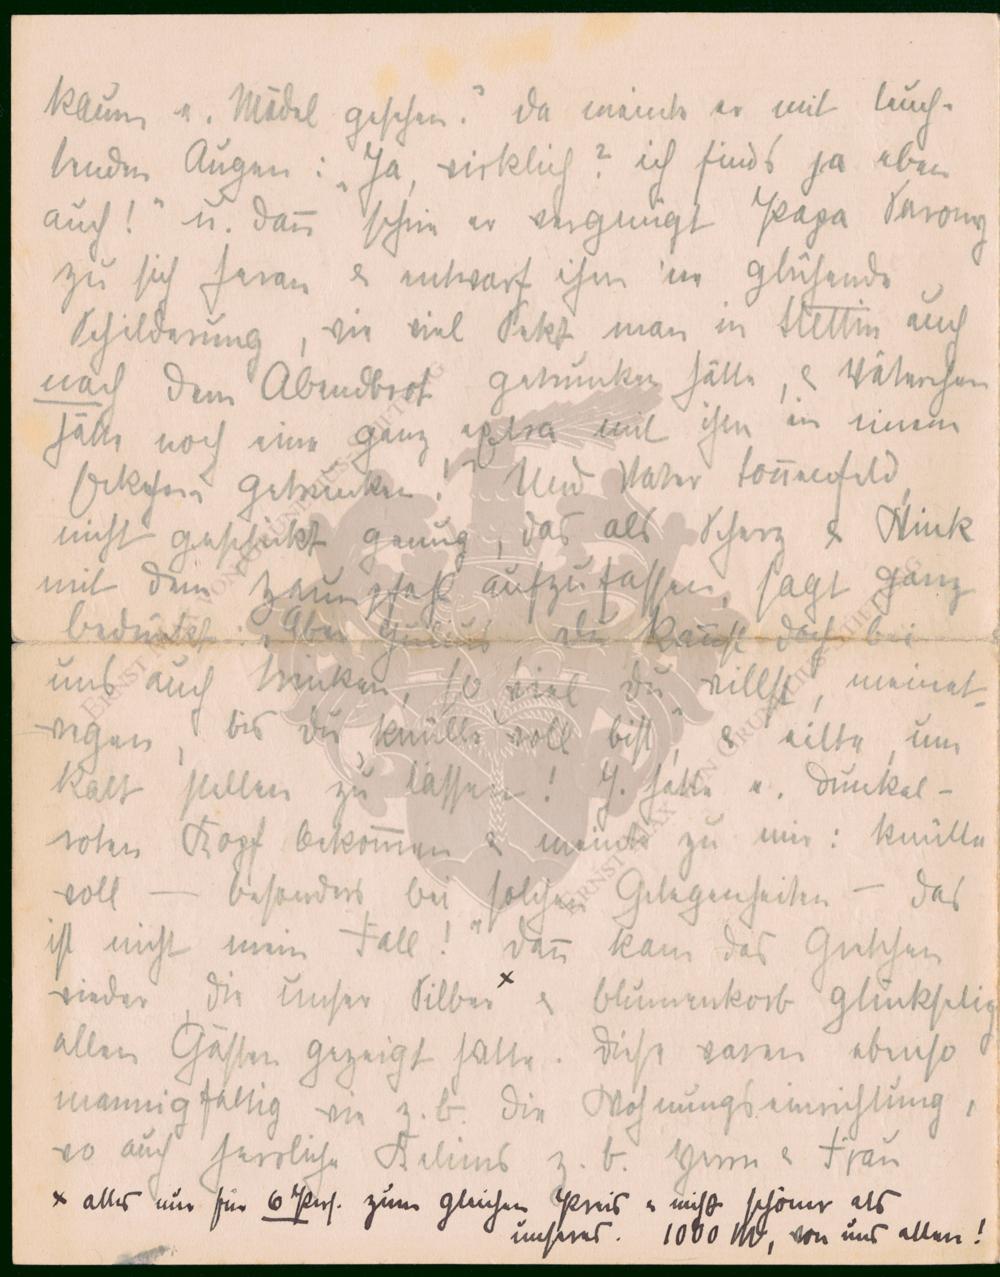 kaum e. Mädel gesehen." Da meinte er mit leuch-
tenden Augen: „Ja, wirklich? ich finds ja eben
auch!" u. dañ schrie er vergnügt Papa
zu sich heran & entwarf ihm 'ne glühende
Schilderung, wie viel Sekt man in Stettin auch
nach dem Abendbrot getrunken hätte, & Väterchen
hätte noch eine ganz extra mit ihm in einem
Eckchen getrunken!" Und Vater
nicht geschickt genug, das als Scherz & Wink
mit dem Zaunpfahl aufzufassen, sagt ganz
: „Aber du kañst doch bei
uns auch trinken, so viel du willst, meinet-
wegen, bis du knülle voll bist", & eilte, um
kalt stellen zu lassen! J. hatte e. dunkel-
roten Kopf bekom̄en & meinte zu mir: knülle
voll — besonders bei solchen Gelegenheiten — das
ist nicht mein Fall!" Dañ kam das Gretchen
wieder, die unser Silber x & Blumenkorb glückselig
allen Gästen gezeigt hatte. Diese waren ebenso
mannigfaltig wie z. b. die Wohnungseinrichtung,
wo auch herrliche Kelims z. b. & Frau
x alles nur für 6 Pers. zum gleichen Preis & nicht schöner als
unseres. 1000 M, von uns allen!
ERNST MAX VON GRUNELIUS-STIFTUNG
ERNST MAX VON GRUNELIUS-STIFTUNG